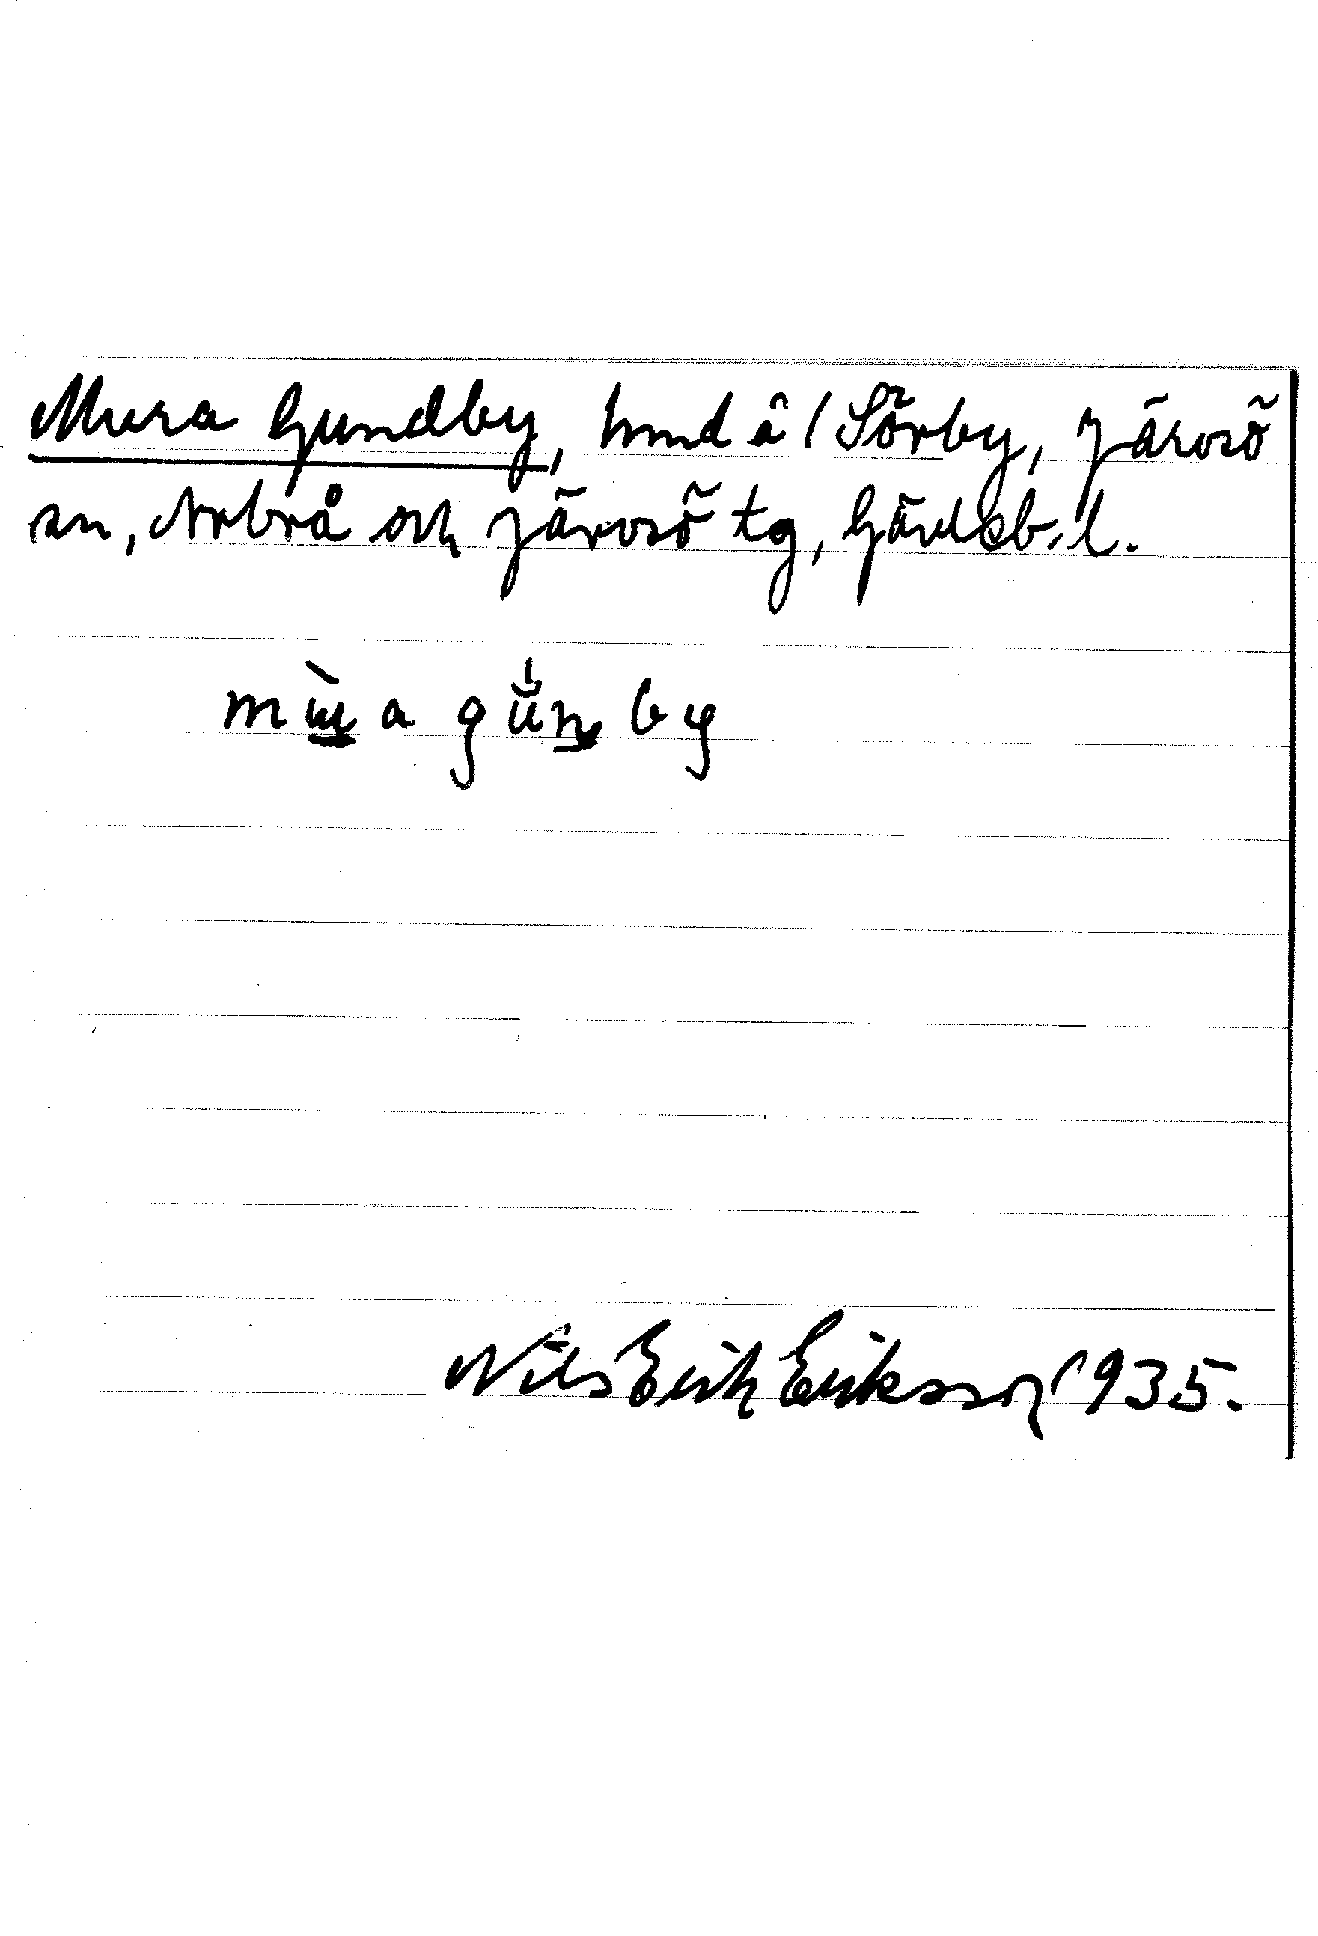 Mura Gundby, hmd å 1 Sörby, Järvsö
sn, Arbrå och Järvsö tg, Gävleb. l.
a gŭn by
Nils Erik Eriksson 1935.